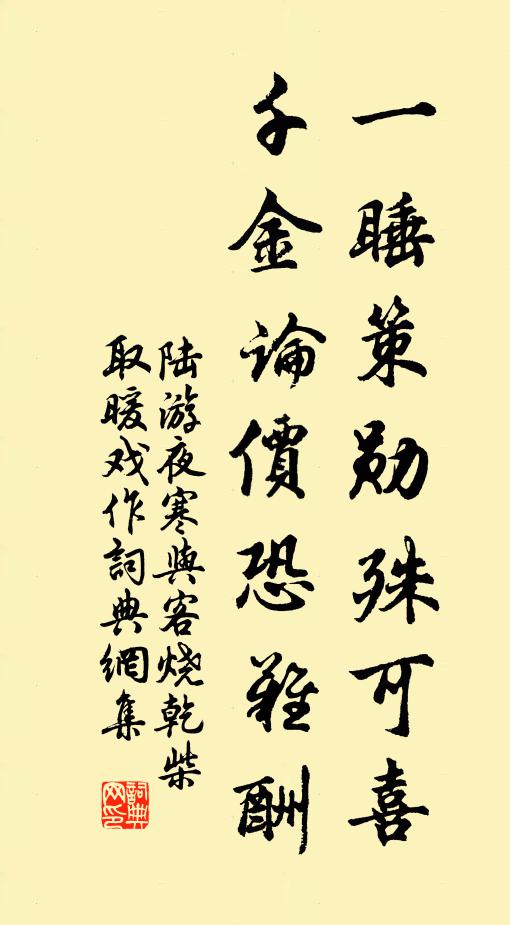 一睡策勋殊可喜
千金論價恐難酬
陆游夜寒與客烧乾柴
取暖戏作詞典網集
詞典网印